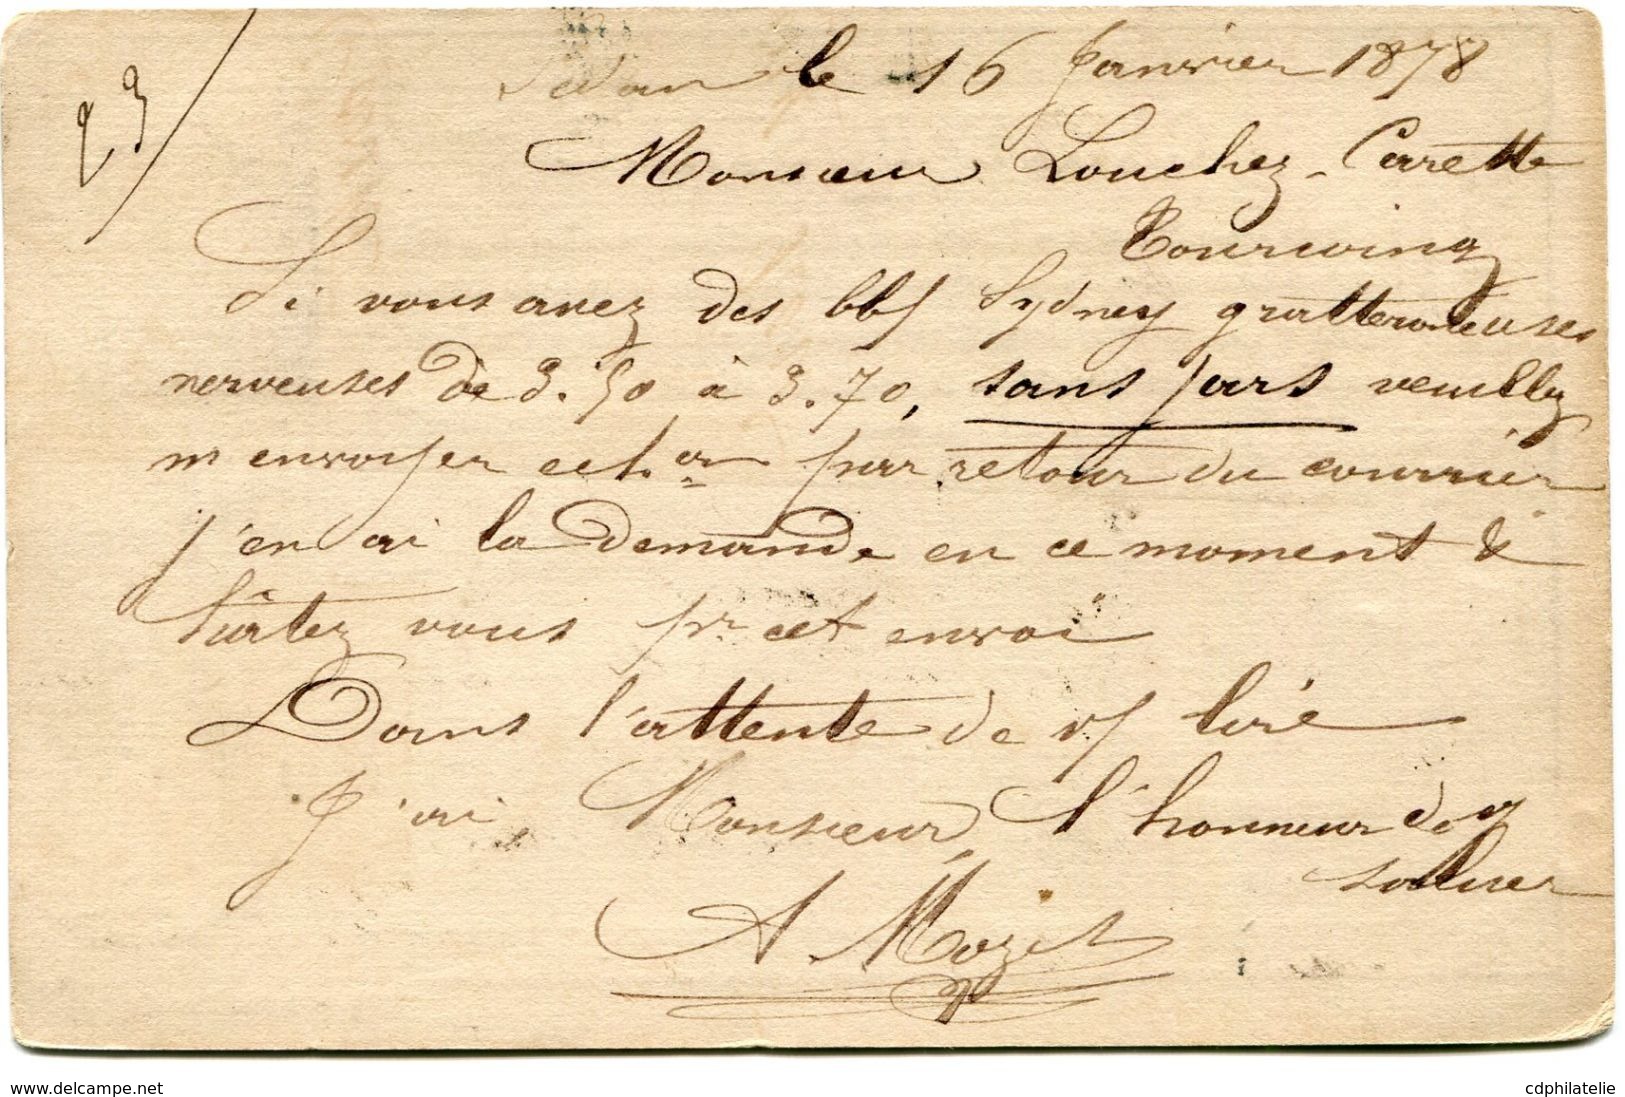 23
Sedan le 16 Janvier 1878
Monsieur Louchez-Carette
Tourcoing
Si vous avez des bbs Sydney gratteronneuses
nerveuses de 3.50 à 3.70, sans pars veuillez
m'envoyer echon par retour du courrier
j'en ai la demande en ce moment &
hâtez vous pr cet envoi
Dans l'attente de vs liré
J'ai, Monsieur, l'honneur de vs
saluer
A. Mozet
www.delcampe.net
cdphilatelie